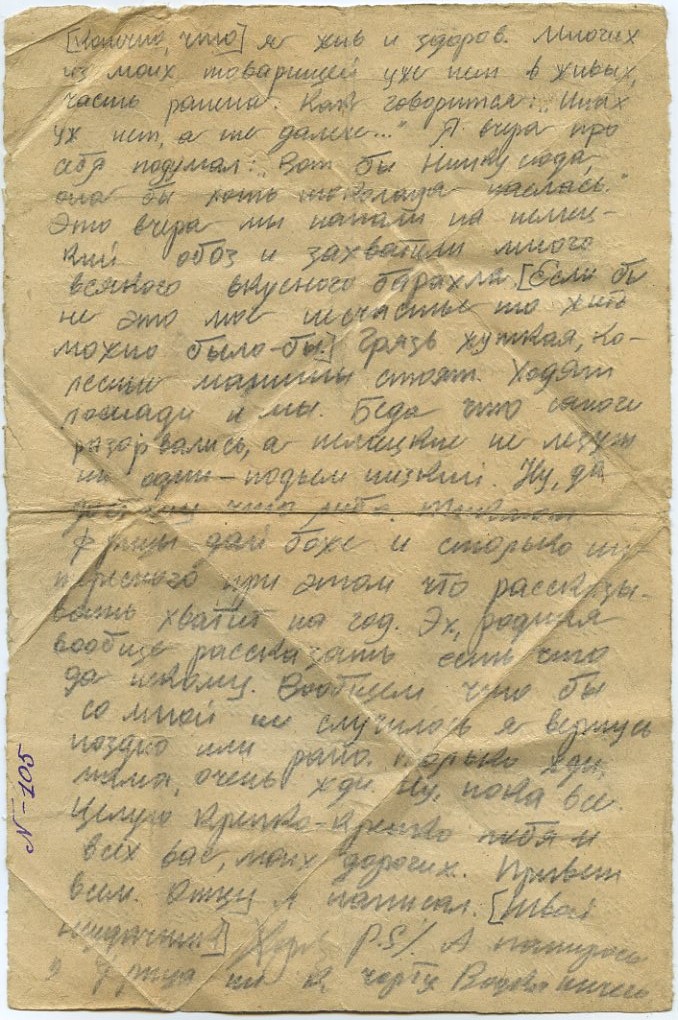 [Конечно, что] я жив и здоров. Многих
из моих товарищей уже нет в живых,
часть ранена. Как говорится: „Иных
уж нет, а те далече..." Я вчера про
себя подумал: „Вот бы Нинку сюда,
она бы хоть шоколада наелась."
Это вчера мы напали на немец-
кий обоз и захватили много
всякого вкусного барахла. [Если бы
не это мое несчастье то жить
можно было-бы.] Грязь жуткая, ко-
лесные машины стоят. Ходят
лошади и мы. Беда что сапоги
разорвались, а немецкие не лезут
ни одни – подъем низкий. Ну, да
что либо.
фрицы дай боже и столько ин-
тересного при этом что рассказы-
вать хватит на год. Эх, родная
вообще рассказать есть что
да некому. Вообщем что бы
со мной ни случилось я вернусь
поздно или рано. Только жди,
мама, очень жди. Ну, пока все.
Целую крепко-крепко тебя и
всех вас, моих дорогих. Привет
всем. Отцу я написал. [Твой
неудачник] P.S. А папиросы
у фрица ни к черту. ничего
N-105